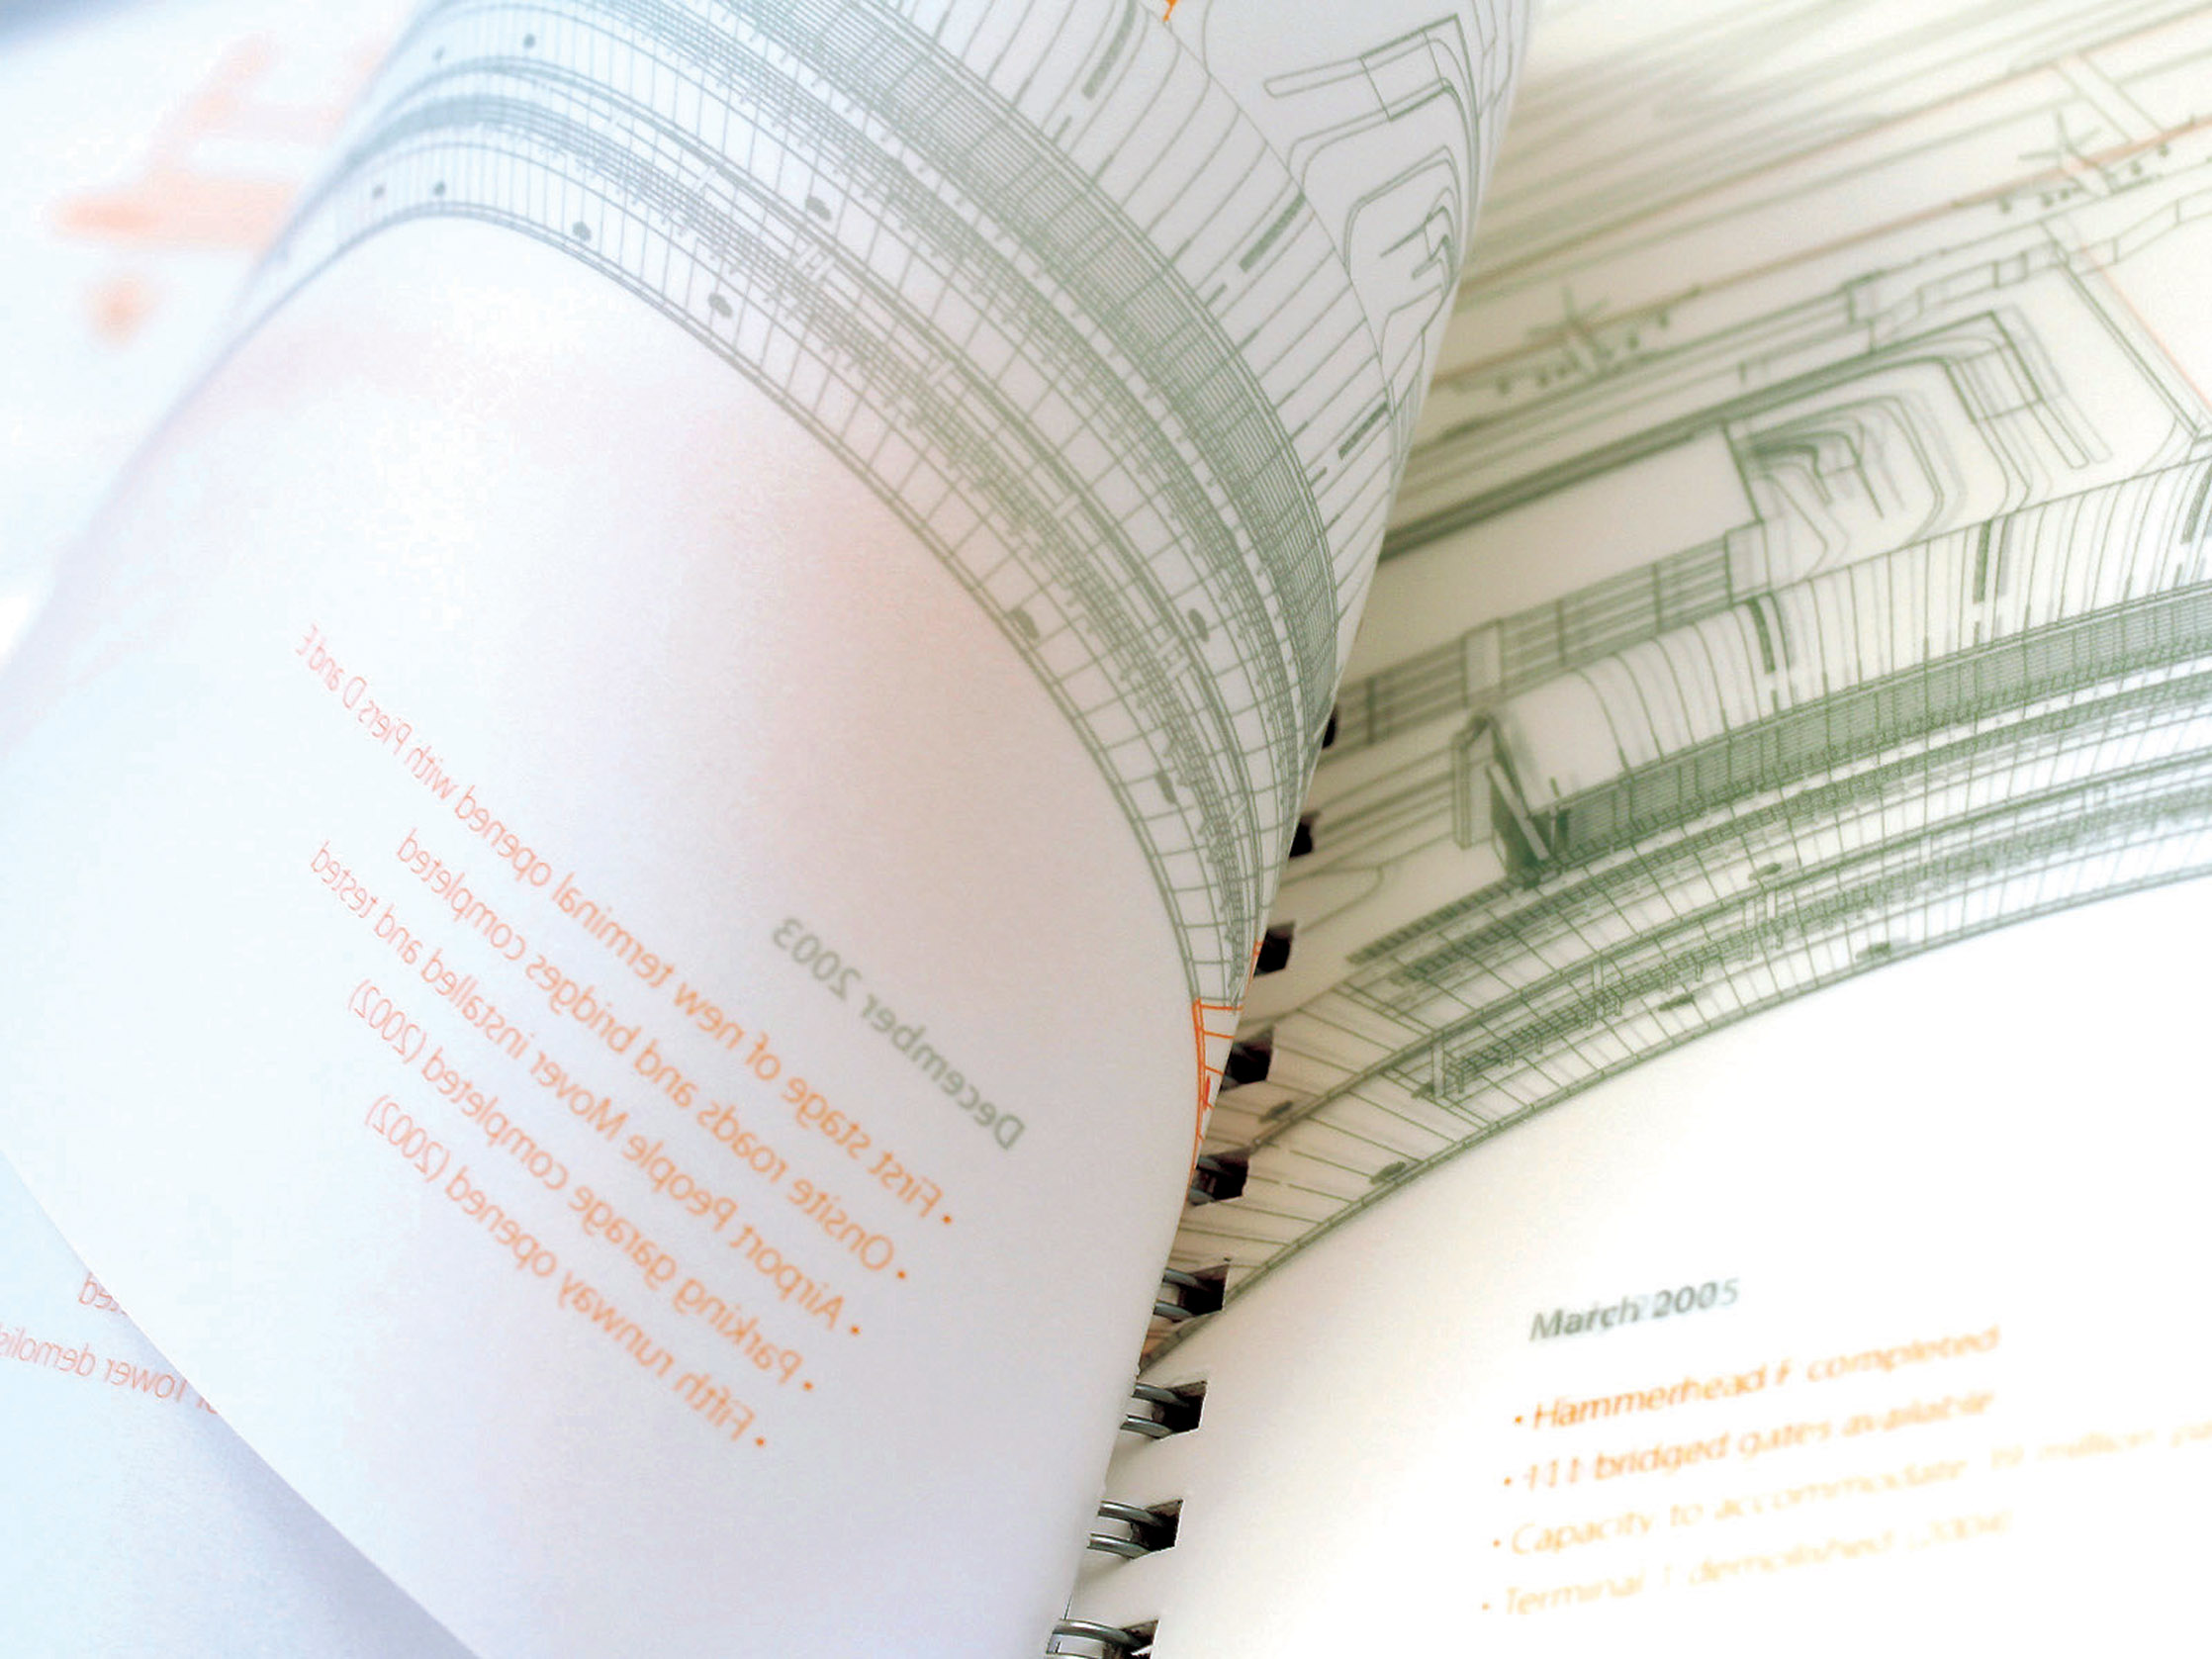 December 2003
• First stage of new terminal opened with Piers D and E
• Onsite roads and bridges completed
• Airport People Mover installed and tested
• Parking garage completed (2002)
• Fifth runway opened (2002)
Tower
March 2005
• Hammerhead F completed
• 111 bridged gates available
• Capacity to accommodate million
• Terminal 1 demolished (2004)